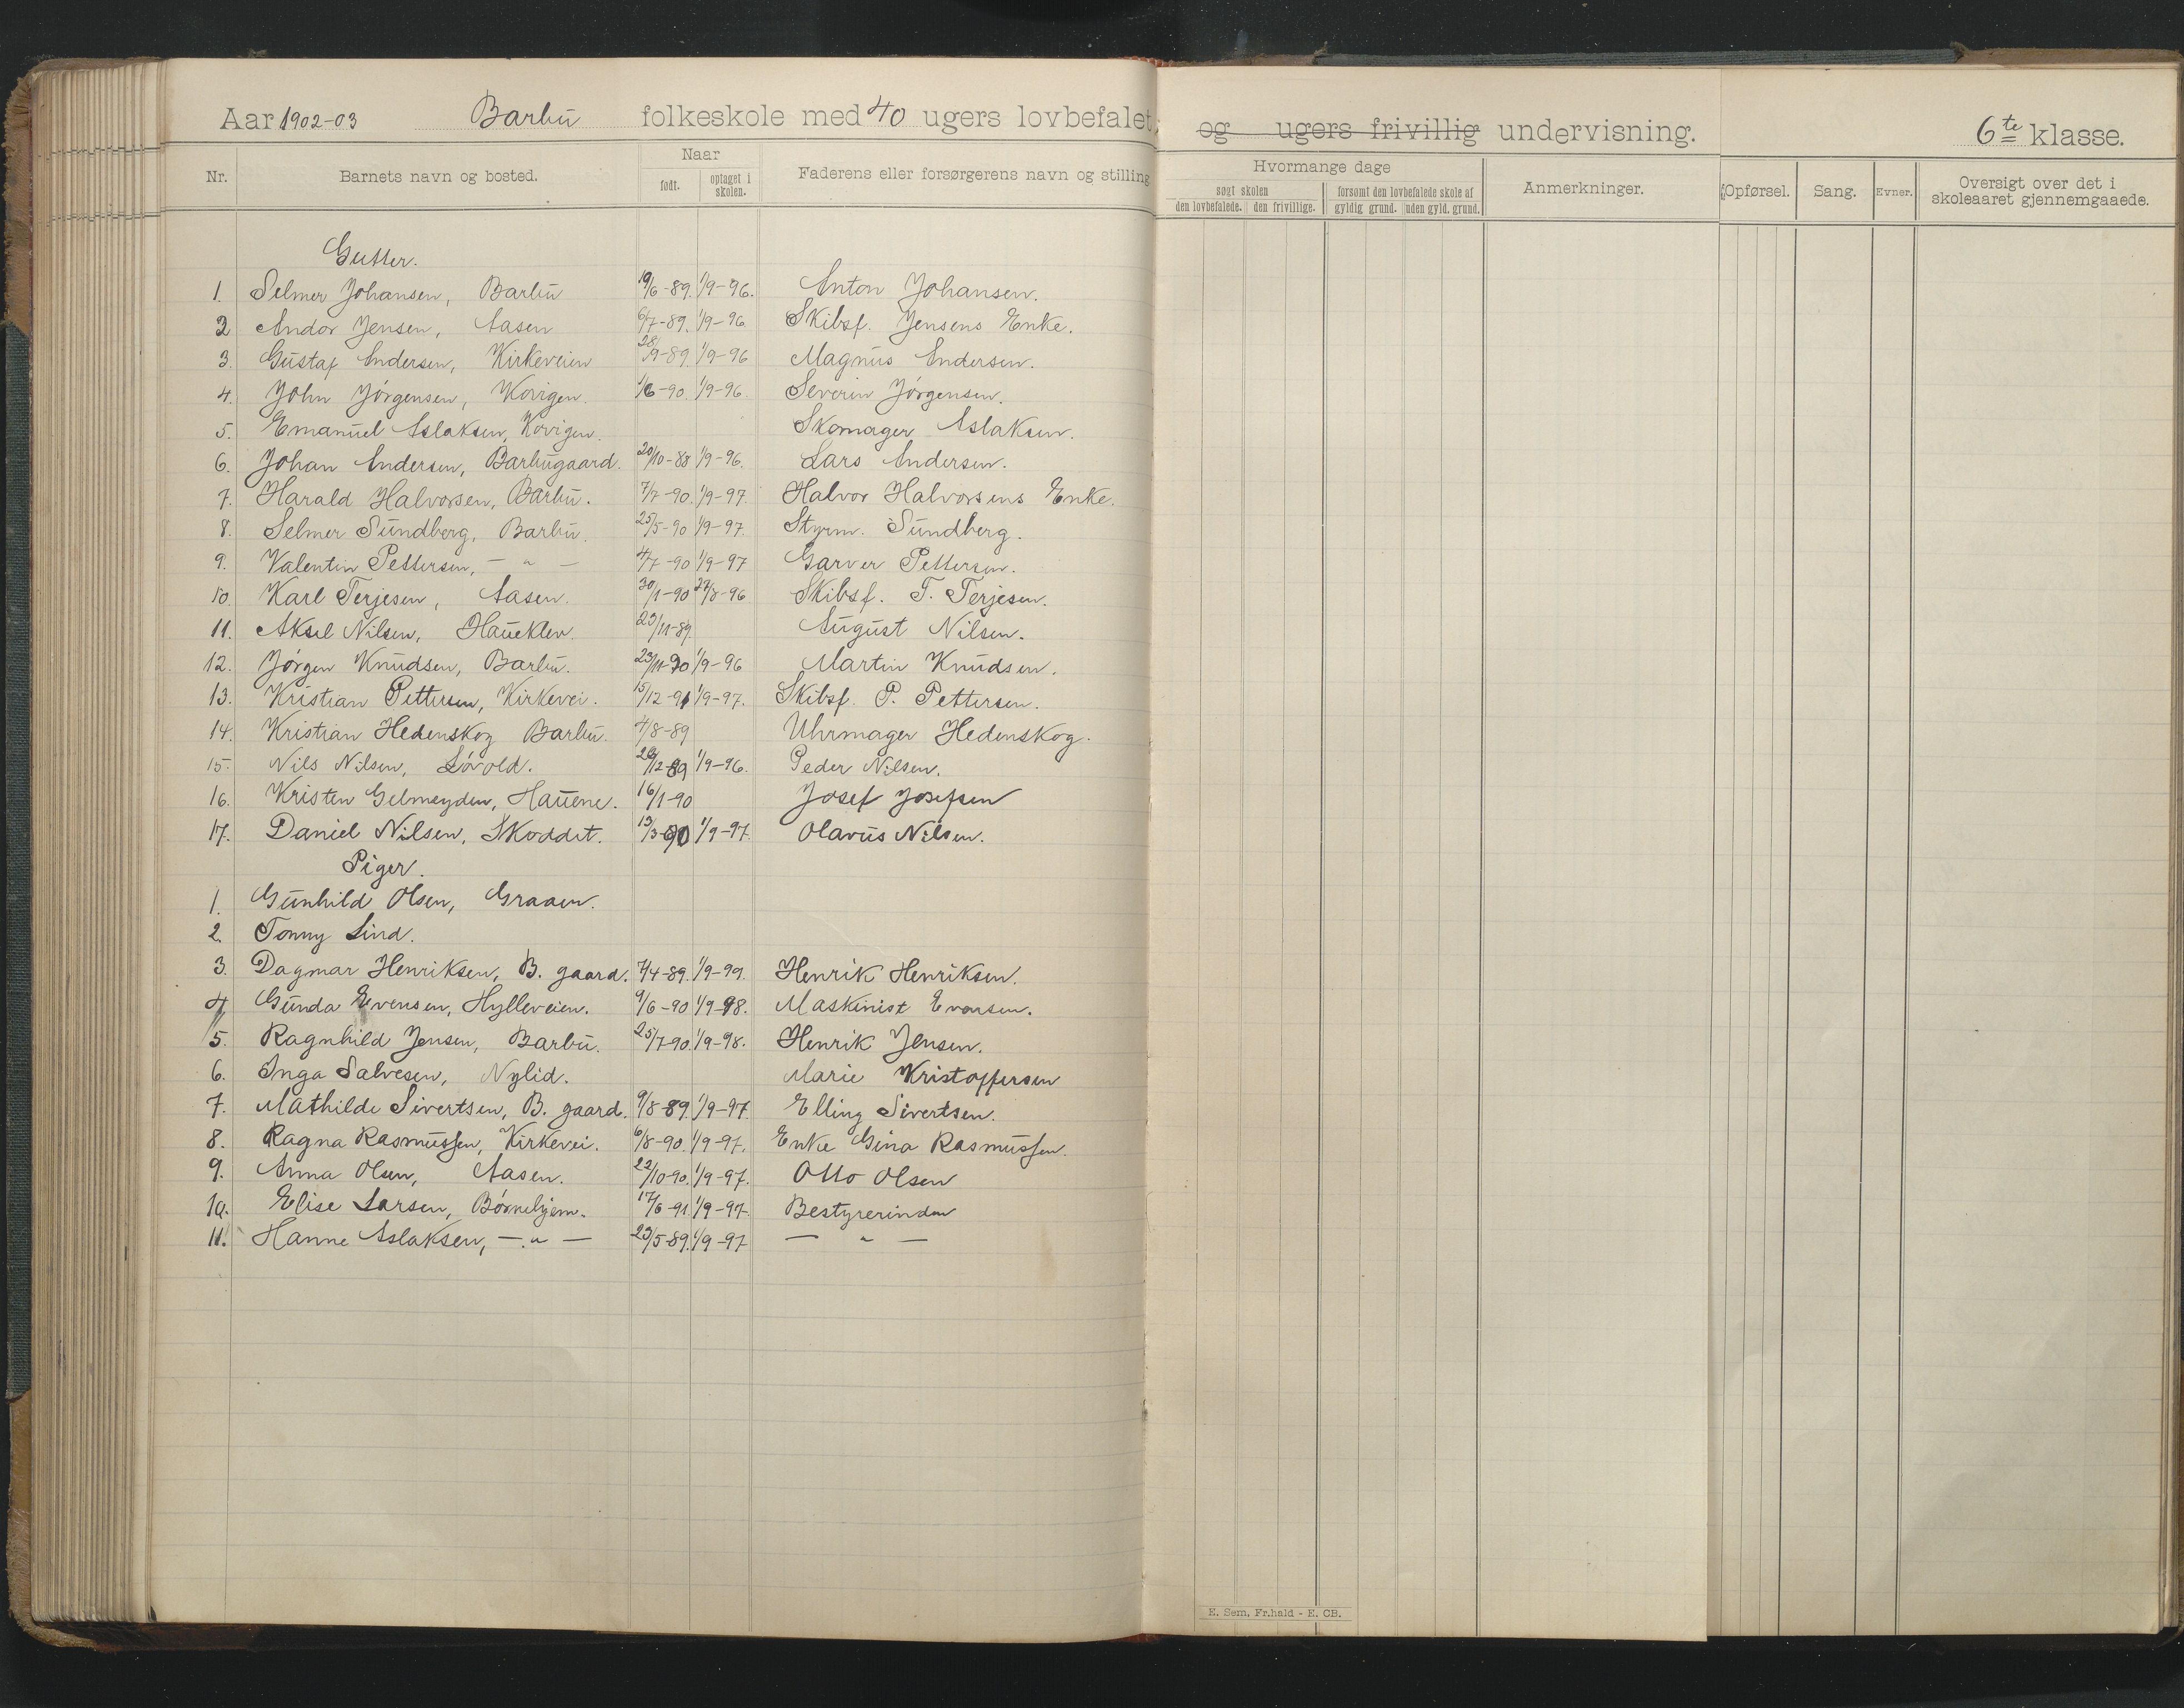 Aar 1902-03 Barbu folkeskole med 40 ugers lovbefalet og ugers frivillig undervisning. 6te klasse.
Nr. Barnets navn og bosted. Naar Faderens eller forsørgerens navn og stilling Hvormange dage Anmerkninger. Opførsel. Sang. Evner. Oversigt over det i skoleaaret gjennemgaaede.
født. optaget i skolen. søgt skolen forsømt den lovbefalede skole af
den lovbefalede. den frivillige. gyldig grund. uden gyld. grund.
Gutter.
1. Selmer Johansen, Barbu 19/6-89. 1/9-96. Anton Johansen.
2 Andor Jensen, Aasen 6/7-89. 1/9-96 Skibsf. Jensens Enke.
3. Gustaf Andersen, Kirkeveien 28/9-89. 1/9-96 Magnus Andersen.
4. John Jórgensen, Kovigen. 1/6-90. 1/9-96 Severin Jórgensen.
5. Emanuel Aslaksen, Kovigen. Skomager Aslaksen.
6. Johan Andersen, Barbugaard. 20/10-88 1/9-96. Lars Andersen.
7. Harald Halvorsen, Barbu. 7/7-90. 1/9-97. Halvor Halvorsens Enke.
8. Selmer Sundberg, Barbu. 25/5-90 1/9-97. Styrm. Sundberg.
9. Valentin Pettersen, — " — 4/7-90 1/9-97 Garver Pettersen.
10. Karl Terjesen, Aasen. 30/1-90 27/8-96. Skibsf. T. Terjesen.
11. Aksel Nilsen, Haueklev. 23/11-89. August Nilsen.
12. Jórgen Knudsen, Barbu. 23/11-90 1/9-96 Martin Knudsen.
13. Kristian Pettersen, Kirkevei. 15/12-91 1/9-97. Skibsf. P. Pettersen.
14. Kristian Hedenskog Barbu. 4/8-89 Uhrmager Hedenskog.
15. Nils Nilsen, Lóvold. /12-89 1/9-96. Peder Nilsen.
16. Kristen Gelmeyden, Hauene. 16/1-90 Josef Josefsen
17. Daniel Nilsen, Skoddet. 13/3-90 1/9-97. Olavus Nilsen.
Piger.
1. Gunhild Olsen, Graaen.
2. Tonny Lind.
3. Dagmar Henriksen, B. gaard. 7/4-89. 1/9-99. Henrik Henriksen.
4. Gunda Evensen, Hylleveien. 9/6-90 1/9-98. Maskinist Evensen.
5. Ragnhild Jensen, Barbu. 25/7-90. 1/9-98. Henrik Jensen.
6. Inga Salvesen, Nylid. Marie Kristoffersen
7. Mathilde Sivertsen, B. gaard. 9/8-89. 1/9-97. Elling Sivertsen.
8. Ragna Rasmussen, Kirkevei. 6/8-90. 1/9-97. Enke Gina Rasmussen.
9. Anna Olsen, Aasen. 22/10-90. 1/9-97. Otto Olsen
10. Elise Larsen, Bórnehjem. 17/6-91. 1/9-97. Bestyrerinden
11. Hanne Aslaksen, — " — 23/5-89. 1/9-97 — " —
E. Sem, Fr.hald - E. CB.